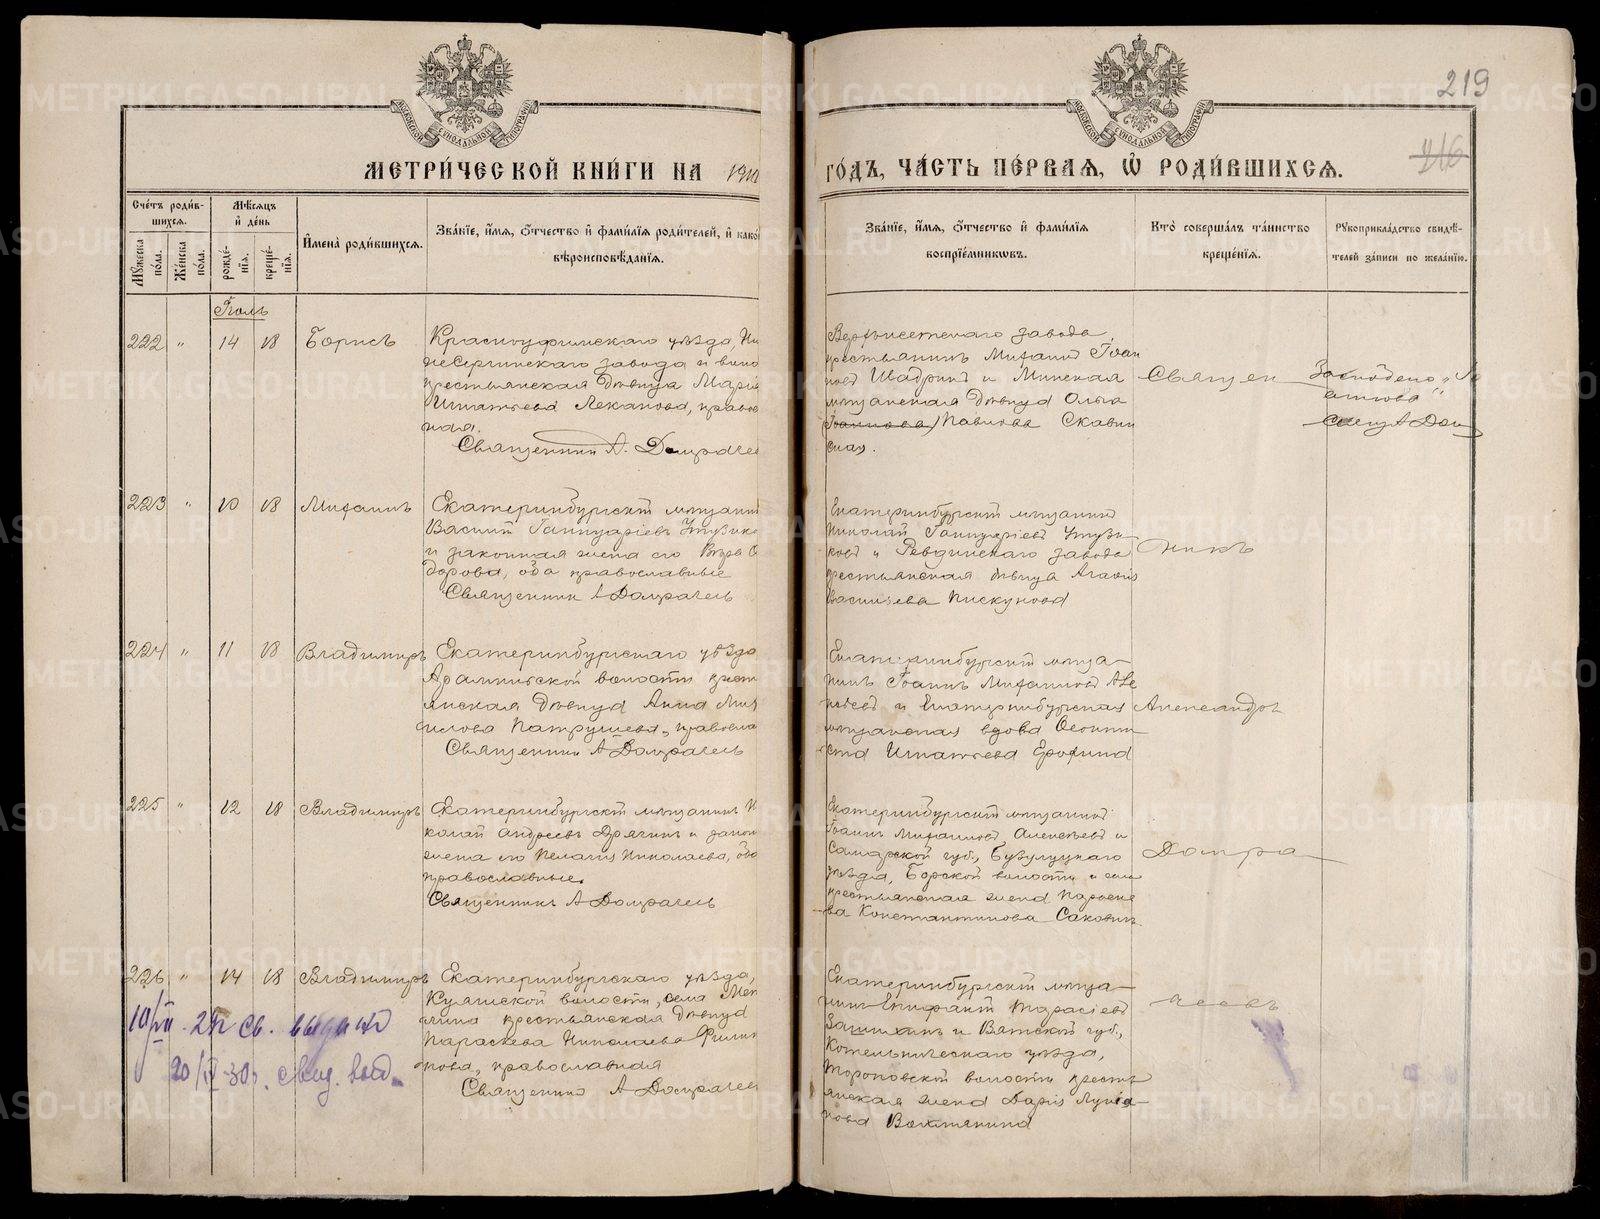 219
МЕТРИ́ЧЕСКОЙ КНИ́ГИ НА 1910
ГО́ДЪ, ЧА́СТЬ ПЕ́РВАЯ, Ѡ҆ РОДИ́ВШИХСЯ.
Сче́тъ роди́в-
шихся.
Мѣ́сяцъ
и҆ де́нь
Му́жеска
по́ла.
Же́нска
по́ла.
рожде́-
нїя.
креще́-
нїя.
И҆мена̀ роди́вшихся.
Зва́нїе, и҆́мя, ѻ҆́тчество и҆ фами́лїя роди́телей, и҆ како́
вѣроисповѣ́данїя.
Зва́нїе, и҆́мя, ѻ҆́тчество и҆ фами́лїя
воспрїе́мниковъ.
Кто̀ соверша́лъ та́инство
креще́нїя.
Рꙋкоприкла́дство свидѣ́-
телей за́писи по жела́нїю.
Іюль
222 " 14 18 Борисъ
Красноуфимскаго уѣзда, Ни
жесергинскаго завода и воло
крестьянская дѣвица Марія
Игнатьева Леканова, правос
ная.
Священникъ А. Домрачев
Верхисетскаго завода
крестьянинъ Михаилъ Іоан
новъ Шадринъ и Минская
мѣщанская дѣвица Ольга
Іоаннова Павлова Скави
ская.
Священ
223 " 10 18 Михаилъ
Екатеринбургскій мѣщанин
Василій Ганнуаріевъ
и законная жена его Вѣра Ѳ
дорова, оба православные
Священникъ А Домрачевъ
Екатеринбургскій мѣщанинъ
Николай Ганнуаріевъ
ковъ и Ревдинскаго завода
крестьянская дѣвица Агафія
Васильева Пискунова
никъ
224 " 11 18 Владимиръ
Екатеринбургскаго уѣзда
Арамильской волости крест
янская дѣвица Анна Мих
аилова Патрушева, правосла
Священникъ А Домрачевъ
Екатеринбургскій мѣща-
нинъ Іоаннъ Михаиловъ Але
ксѣевъ и Екатеринбургская
мѣщанская вдова Ѳеокти
ста Игнатьева Ерохина
Александръ
225 " 12 18 Владимиръ
Екатеринбургскій мѣщанинъ Ни
колай Андреевъ и закон
жена его Пелагія Николаева, оба
православные.
Священникъ А Домрачевъ
Екатеринбургскій мѣщанинъ
Іоаннъ Михаиловъ Алексѣевъ и
Самарской губ., Бузулуцкаго
уѣзда, Борской волости и села
крестьянская жена Параске
ва Константинова
Домра
226 " 14 18 Владимиръ
Екатеринбургскаго уѣзда,
Куяшской волости, села
крестьянская дѣвица
Параскева Николаева Филип
пова, православная
Священникъ А Домрачев
Екатеринбургскій мѣща-
нинъ Епифаній Тарасіевъ
и Вятской губ.,
Котельническаго уѣзда,
Тороповской волости крест
янская жена Дарія Лукіа-
нова
чевъ
20/IV-30г. свид. выд.